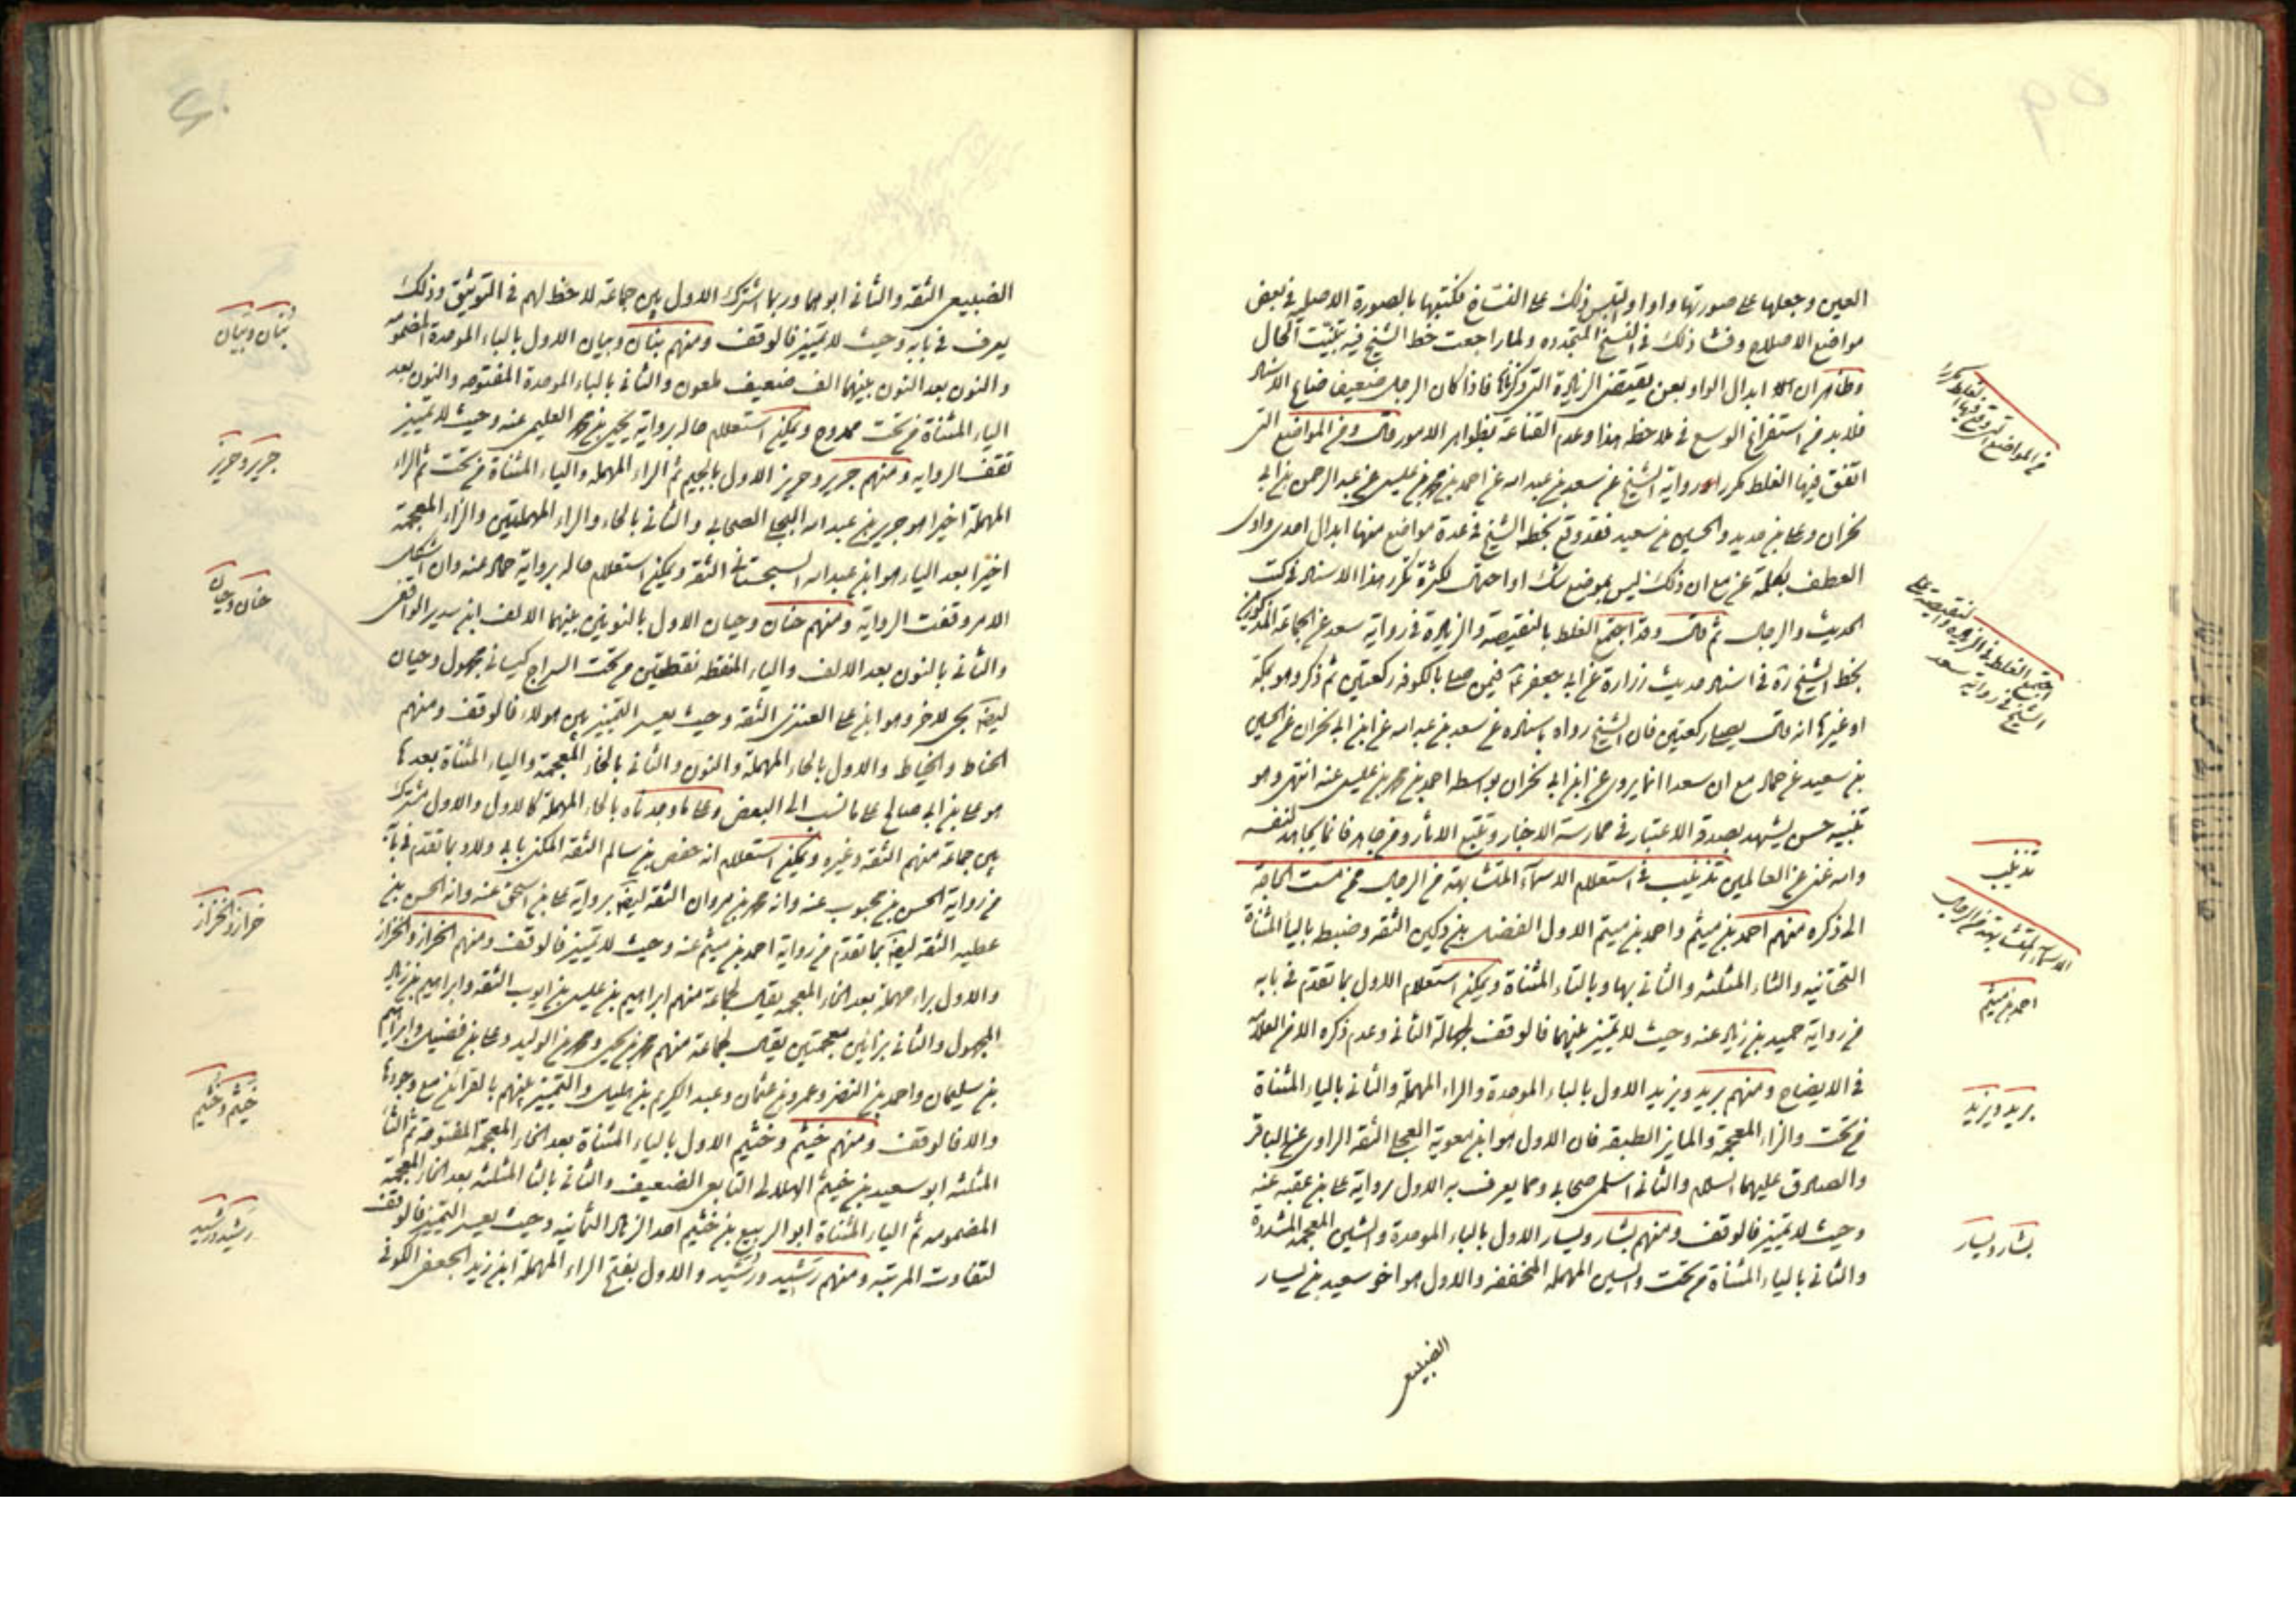 العين وجعلها على صورتها واوا والتبس ذلك على النساخ فكتبوها بالصورة الاصلية في بعض
مواضع الاصلاح وفشا ذلك في النسخ المتجددة ولما راجعت خط الشيخ فيه تبينت الحال
وظاهر ان ابدال الواو بعن يقتضي الزيادة التي ذكرناها فاذا كان الرجل ضعيف ضاع الاسناد
فلابد من استفراغ الوسع في ملاحظة هذا وعدم القناعة بظواهر الامور قال ومن المواضع التي
اتفق فيها الغلط مكررا رواية الشيخ عن سعد بن عبد الله عن احمد بن محمد بن عيسى عن عبد الرحمن بن ابي
نجران وعلي بن حديد والحسين بن سعيد فقد وقع بخط الشيخ في عدة مواضع منها ابدال احدى واوي
العطف بكلمة عن مع ان ذلك ليس بموضع شك او احتمال لكثرة تكرر هذا الاسناد في كتب
الحديث والرجال ثم قال وقد اجتمع الغلط بالنقيصة والزيادة في رواية سعد عن الجماعة المذكورين
بخط الشيخ ره في اسناد حديث زرارة عن ابي جعفر ع فيمن صلى بالكوفة ركعتين ثم ذكر وهو بمكة
او غيرها انه قال يصلي ركعتين فان الشيخ رواه باسناده عن سعد بن عبد الله عن ابن ابي نجران عن الحسين
بن سعيد عن حماد مع ان سعدا انما يروي عن ابن ابي نجران بواسطة احمد بن محمد بن عيسى عنه انتهى وهو
تنبيه حسن يشهد بصدق الاعتبار في ممارسة الاخبار وتتبع الاثار ومن جاهد فانما يجاهد لنفسه
والله غني عن العالمين تذنيب في استعلام الاسماء المتشابهة من الرجال ممن مست الحاجة
الى ذكره منهم احمد بن ميثم واحمد بن ميتم الاول الفضل بن دكين الثقة وضبط بالياء المثناة
التحتانية والثاء المثلثة والثاني بها وبالتاء المثناة ويمكن استعلام الاول بما تقدم في بابه
من رواية حميد بن زياد عنه وحيث لا تمييز بينهما فالوقف لجهالة الثاني وعدم ذكره الا من العلامة
في الايضاح ومنهم بريد ويزيد الاول بالباء الموحدة والراء المهملة والثاني بالياء المثناة
من تحت والزاء المعجمة والمايز الطبقة فان الاول هو ابن معوية العجلي الثقة الراوي عن الباقر
والصادق عليهما السلام والثاني اسلمي صحابي ومما يعرف به الاول برواية علي بن عقبة عنه
وحيث لا تمييز فالوقف ومنهم بشار ويسار الاول بالباء الموحدة والشين المعجمة المشددة
والثاني بالياء المثناة من تحت والسين المهملة المخففة والاول هو اخو سعيد بن يسار
الضبيعي
في المواضع التي وقع فيها الغلط مكررا
تذنيب
الاسماء المتشابهة من الرجال
احمد بن ميثم
بريد ويزيد
بشار ويسار
٥٩
الضبيعي الثقة والثاني ابو هما وربما اشترك الاول بين جماعة لاحظ لهم في التوثيق وذلك
يعرف في بابه وحيث لا تمييز فالوقف ومنهم بنان وبيان الاول بالباء الموحدة المضمومة
والنون بعد النون بينهما الف ضعيف ملعون والثاني بالباء الموحدة المفتوحه والنون بعد
الياء المثناة من تحت ممدوح ويمكن استعلام حاله برواية يحيى بن محمد العليمي عنه وحيث لا تمييز
تقف الرواية ومنهم جرير وحريز الاول بالجيم ثم الراء المهملة والياء المثناة من تحت ثم الراء
المهملة اخيرا هو جرير بن عبد الله البجلي الصحابي والثاني بالحاء والراء المهملتين والزاء المعجمة
اخيرا بعد الياء هو ابن عبد الله السجستاني الثقة ويمكن استعلام حاله برواية حماد عنه وان اشكل
الامر وقفت الرواية ومنهم حنان وحيان الاول بالنونين بينهما الالف ابن سدير الواقفي
والثاني بالنون بعد الالف والياء المنقطة نقطتين من تحت السراج كيساني مجهول وحيان
ايضا يجيء لاخر وهو ابن علي العنزي الثقة وحيث يعسر التمييز بين هولاء فالوقف ومنهم
الحناط والخياط والاول بالحاء المهملة والنون والثاني بالخاء المعجمة والياء المثناة بعدها
هو علي بن ابي صالح على ما نسب الى البعض وعلى ما وجدناه بالحاء المهملة كالاول والاول مشترك
بين جماعة منهم الثقة وغيره ويمكن استعلام انه حفص بن سالم الثقة المكنى بابي ولاد بما تقدم في بابه
من رواية الحسن بن محبوب عنه وانه محمد بن مروان الثقة ايضا برواية علي بن اسحق عنه وانه الحسن بن
عطية الثقة ايضا كما تقدم من رواية احمد بن ميثم عنه وحيث لا تمييز فالوقف ومنهم الخراز والخزاز
والاول براء مهملة بعد الخاء المعجمة يقال لجماعة منهم ابراهيم بن عيسى بن ايوب الثقة وابراهيم بن زياد
المجهول والثاني بزائين معجمتين يقال لجماعة منهم محمد بن يحيى ومحمد بن الوليد وعلي بن فضيل وابراهيم
بن سليمان واحمد بن النضر وعمرو بن عثمان وعبد الكريم بن هليل والتمييز بينهم بالقرائن مع وجودها
والا فالوقف ومنهم خيثم وخثيم الاول بالياء المثناة بعد الخاء المعجمة المفتوحة ثم الثاء
المثلثة ابو سعيد بن خيثم الهلالي التابعي الضعيف والثاني بالثاء المثلثة بعد الخاء المعجمة
المضمومه ثم الياء المثناة ابو الربيع بن خثيم احد الزهاد الثمانية وحيث يعسر التمييز فالوقف
لتفاوت المرتبة ومنهم رشيد ورشيد والاول بفتح الراء المهملة ابن زيد الجعفي الكوفي
بنان وبيان
جرير وحريز
حنان وحيان
خراز والخزاز
خيثم وخثيم
رشيد ورشيد